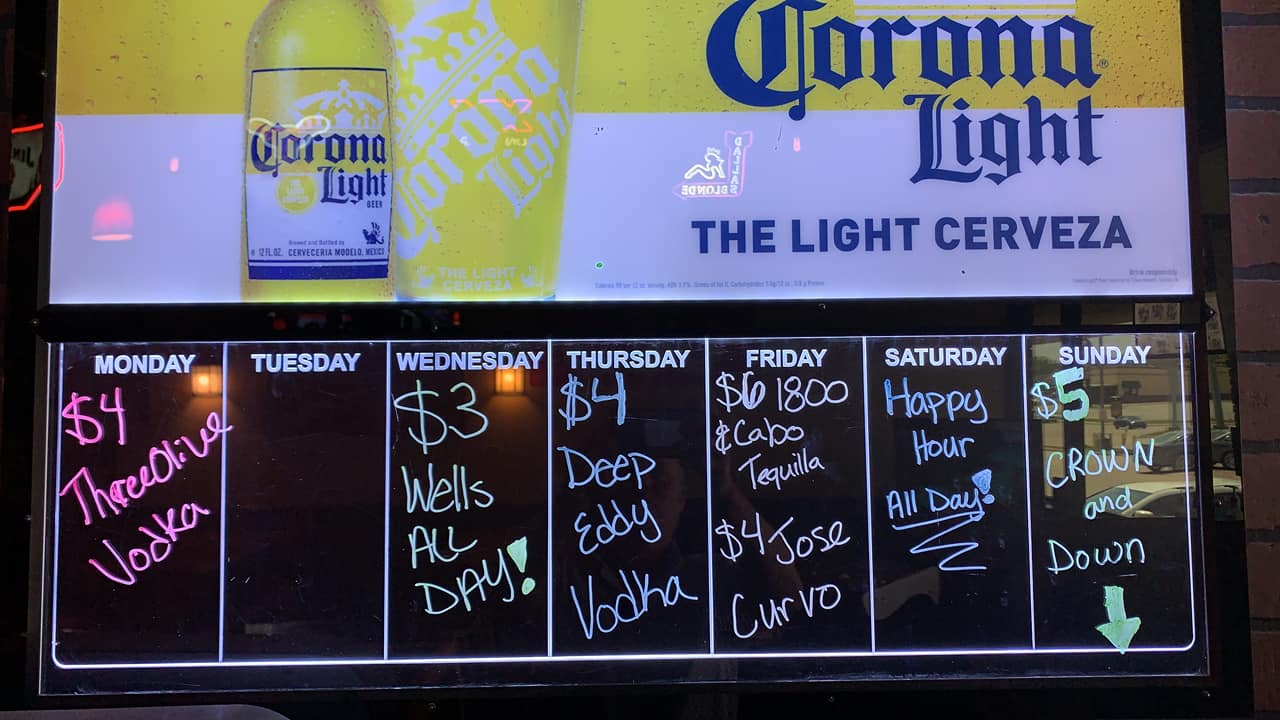 Corona
Light
THE LIGHT CERVEZA
Corona
Light
BEER
Brewed and Bottled by
12 FL. OZ. CERVECERIA MODELO, MEXICO
Corona
Light
THE LIGHT
CERVEZA
DALLAS
BLONDE
Drink responsibly.
MONDAY
$4
ThreeOlive
Vodka
TUESDAY
WEDNESDAY
$3
Wells
ALL
DAY!
THURSDAY
$4
Deep
Eddy
Vodka
FRIDAY
$6 1800
& Cabo
Tequilla
$4 Jose
Curvo
SATURDAY
Happy
Hour
All Day!
SUNDAY
$5
CROWN
and
Down